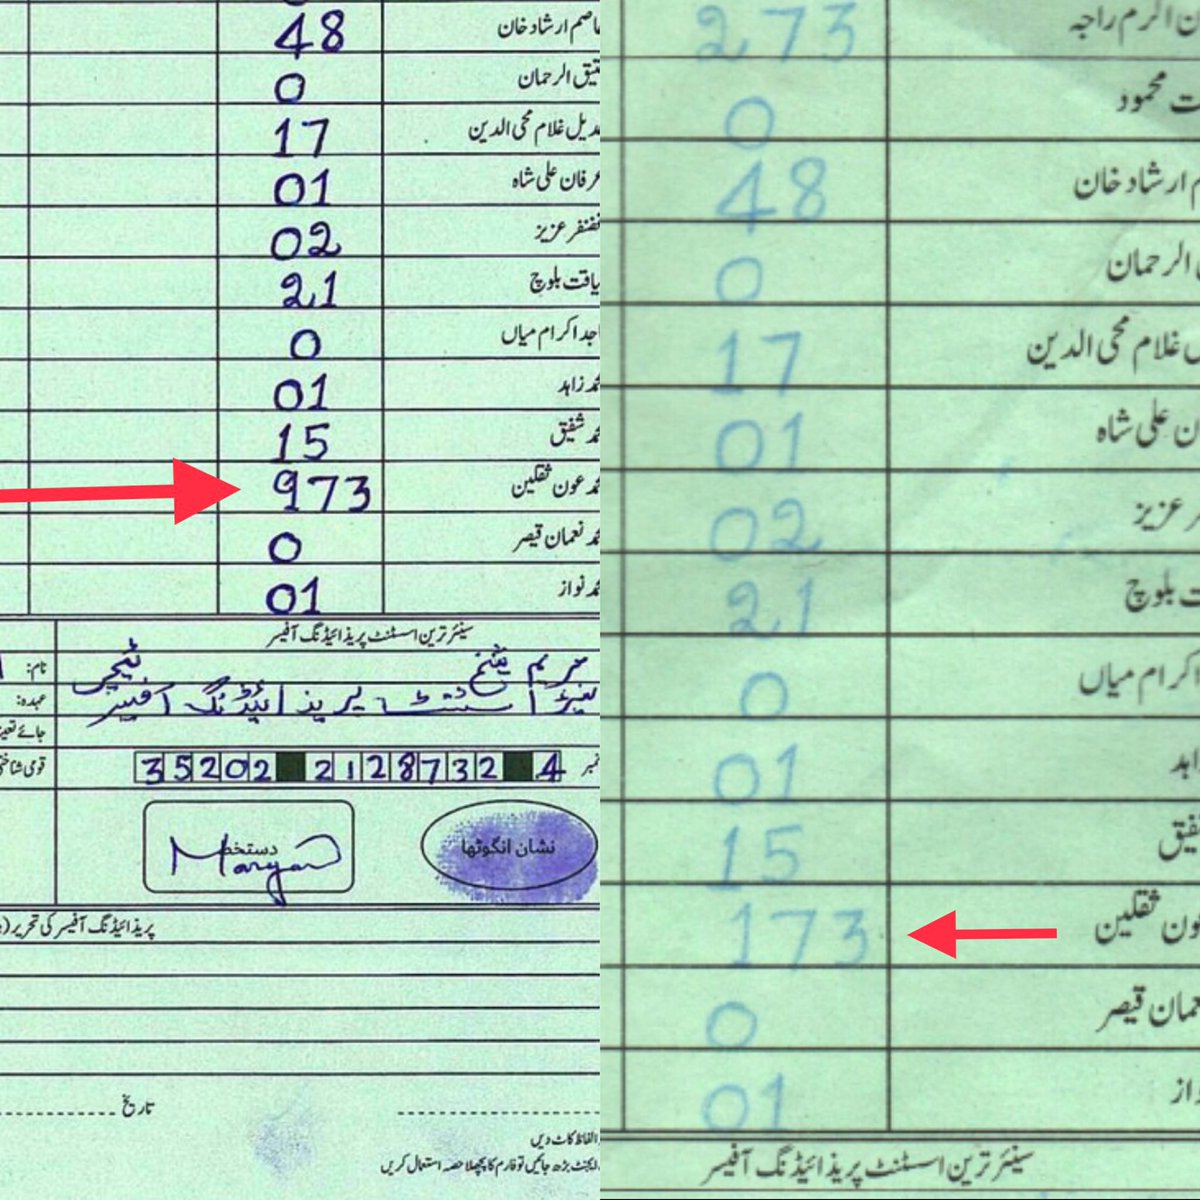 48 عاصم ارشاد خان
0 الرحمان
17 غلام محی الدین
01 عرفان علی شاہ
02 غضنفر عزیز
21 لیاقت بلوچ
0 اکرام میاں
01 زاہد
15 شفیق
973 محمد عون ثقلین
0 نعمان قیصر
01 نواز
سینئر ترین اسسٹنٹ پریذائیڈنگ آفیسر
نام: مریم ٹیچر
عہدہ: اسسٹنٹ پریذائیڈنگ آفیسر
35202 2128732 4
دستخط
نشان انگوٹھا
پریذائیڈنگ آفیسر کی تحریر
تاریخ
الفاظ کاٹ دیں
بڑھ جائیں تو فارم کا پچھلا حصہ استعمال کریں
273 اکرم راجہ
0 محمود
48 ارشاد خان
0 الرحمان
17 غلام محی الدین
01 علی شاہ
02 عزیز
21 بلوچ
0 اکرام میاں
01
15
173 عون ثقلین
0 نعمان قیصر
01
سینئر ترین اسسٹنٹ پریذائیڈنگ آفیسر